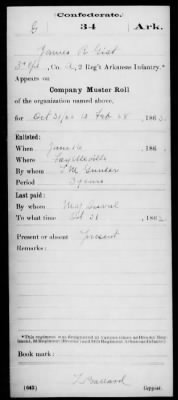 (Confederate.)
G 34 Ark.
James R. Gist
3d Sgt, Co. A, 2 Reg't Arkansas Infantry.*
Appears on
Company Muster Roll
of the organization named above,
for Oct 31, 62 to Feb 28, 1863.
Enlisted:
When June 16, 186
Where Fayetteville
By whom T. M. Gunter
Period 3 years
Last paid:
By whom Maj
To what time Oct 31, 1862.
Present or absent Present
Remarks:
Book mark:
(642) Copyist.